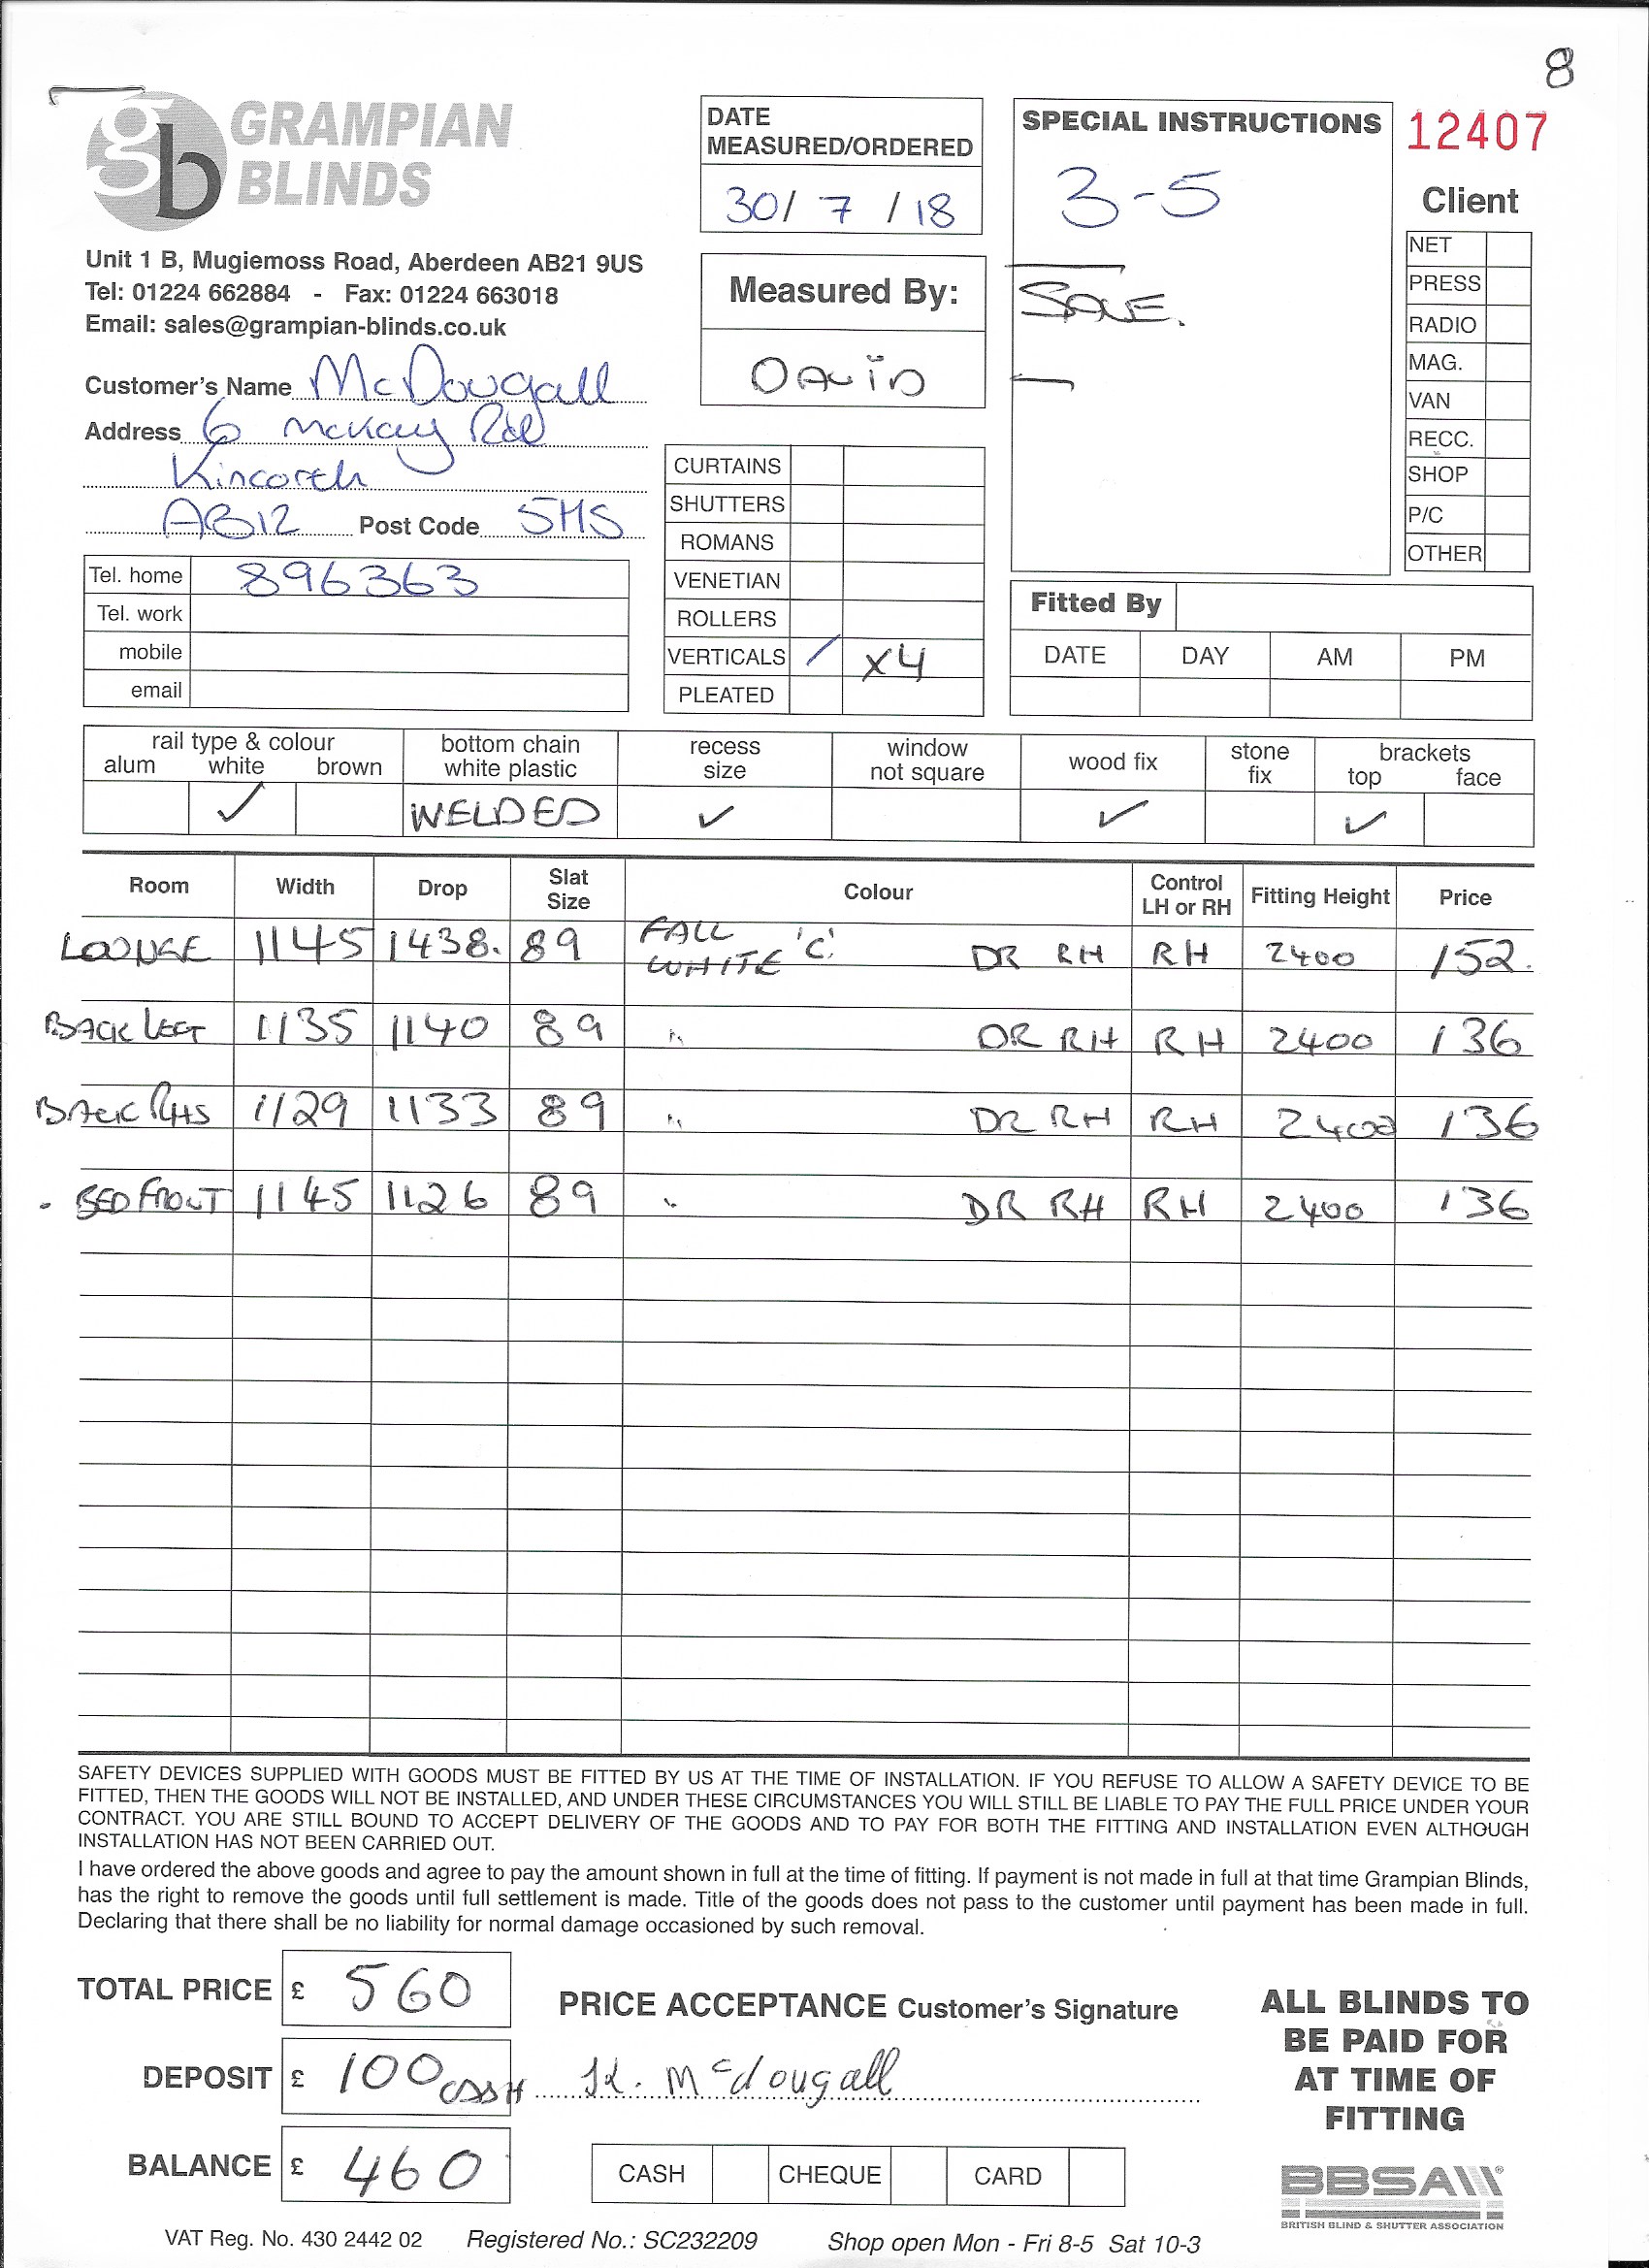 8
GRAMPIAN
BLINDS
Unit 1 B, Mugiemoss Road, Aberdeen AB21 9US
Tel: 01224 662884 - Fax: 01224 663018
Email: sales@grampian-blinds.co.uk
DATE
MEASURED/ORDERED
30/ 7 / 18
Measured By:
DAViD
SPECIAL INSTRUCTIONS
3-5
12407
Client
NET
PRESS
RADIO
MAG.
VAN
RECC.
SHOP
P/C
OTHER
Customer's Name McDougall
Address 6 McKay Rd
Kincorth
AB12 Post Code
Tel. home 896363
Tel. work
mobile
email
CURTAINS
SHUTTERS
ROMANS
VENETIAN
ROLLERS
VERTICALS / x4
PLEATED
Fitted By
DATE DAY AM PM
rail type & colour
alum white brown
✓
bottom chain
white plastic
WELDED
recess
size
✓
window
not square
wood fix
✓
stone
fix
brackets
top face
✓
Room Width Drop Slat Size Colour Control LH or RH Fitting Height Price
LOUNGE 1145 1438. 89 FALL WHITE 'C' DR RH RH 2400 152.
BACK LEFT 1135 1140 89 " DR RH RH 2400 136
BACK RHS 1129 1133 89 " DR RH RH 2400 136
BED FRONT 1145 1126 89 " DR RH RH 2400 136
SAFETY DEVICES SUPPLIED WITH GOODS MUST BE FITTED BY US AT THE TIME OF INSTALLATION. IF YOU REFUSE TO ALLOW A SAFETY DEVICE TO BE
FITTED, THEN THE GOODS WILL NOT BE INSTALLED, AND UNDER THESE CIRCUMSTANCES YOU WILL STILL BE LIABLE TO PAY THE FULL PRICE UNDER YOUR
CONTRACT. YOU ARE STILL BOUND TO ACCEPT DELIVERY OF THE GOODS AND TO PAY FOR BOTH THE FITTING AND INSTALLATION EVEN ALTHOUGH
INSTALLATION HAS NOT BEEN CARRIED OUT.
I have ordered the above goods and agree to pay the amount shown in full at the time of fitting. If payment is not made in full at that time Grampian Blinds,
has the right to remove the goods until full settlement is made. Title of the goods does not pass to the customer until payment has been made in full.
Declaring that there shall be no liability for normal damage occasioned by such removal.
TOTAL PRICE £ 560
DEPOSIT £ 100 CASH
BALANCE £ 460
PRICE ACCEPTANCE Customer's Signature
McDougall
CASH CHEQUE CARD
ALL BLINDS TO
BE PAID FOR
AT TIME OF
FITTING
BBSA
BRITISH BLIND & SHUTTER ASSOCIATION
VAT Reg. No. 430 2442 02 Registered No.: SC232209 Shop open Mon - Fri 8-5 Sat 10-3